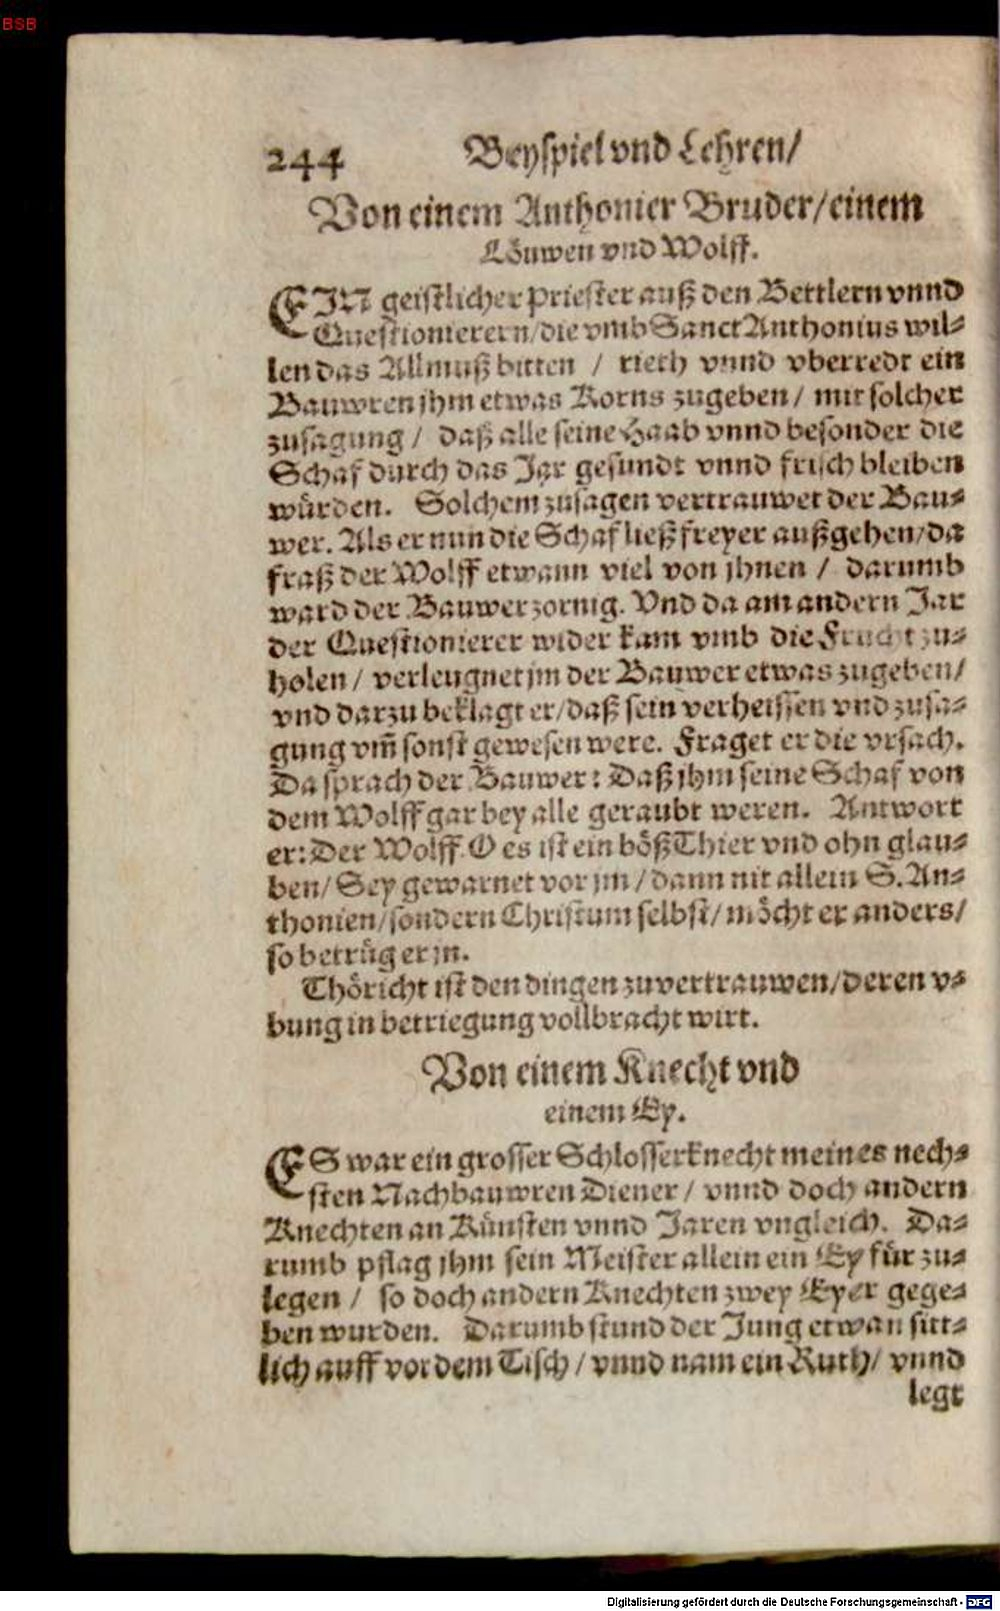 BSB
244 Beyspiel vnd Lehren/
Von einem Anthonier Bruder/einem
Löuwen vnd Wolff.
EIN geistlicher Priester auß den Bettlern vnnd
Questionierern/die vmb Sanct Anthonius wil⸗
len das Allmuß bitten / rieth vnnd vberredt ein
Bauwren jhm etwas Korns zugeben/ mit solcher
zusagung / daß alle seine Haab vnnd besonder die
Schaf durch das Jar gesundt vnnd frisch bleiben
würden. Solchem zusagen vertrauwet der Bau⸗
wer. Als er nun die Schaf ließ freyer außgehen/da
fraß der Wolff etwann viel von jhnen / darumb
ward der Bauwer zornig. Vnd da am andern Jar
der Questionierer wider kam vmb die Frucht zu⸗
holen / verleugnet jm der Bauwer etwas zugeben/
vnd darzu beklagt er/daß sein verheissen vnd zusa⸗
gung vm̃ sonst gewesen were. Fraget er die vrsach.
Da sprach der Bauwer: Daß jhm seine Schaf von
dem Wolff gar bey alle geraubt weren. Antwort
er: Der Wolff. O es ist ein böß Thier vnd ohn glau⸗
ben/ Sey gewarnet vor jm / dann nit allein S. An⸗
thonien/sondern Christum selbst/ möcht er anders/
so betrüg er jn.
Thöricht ist den dingen zuvertrauwen/deren v⸗
bung in betriegung vollbracht wirt.
Von einem Knecht vnd
einem Ey.
ES war ein grosser Schlosserknecht meines nech⸗
sten Nachbauwren Diener / vnnd doch andern
Knechten an Künsten vnnd Jaren vngleich. Da⸗
rumb pflag jhm sein Meister allein ein Ey für zu⸗
legen / so doch andern Knechten zwey Eyer gege⸗
ben wurden. Darumb stund der Jung etwan sitt⸗
lich auff vor dem Tisch / vnnd nam ein Ruth/ vnnd
legt
Digitalisierung gefördert durch die Deutsche Forschungsgemeinschaft - DFG